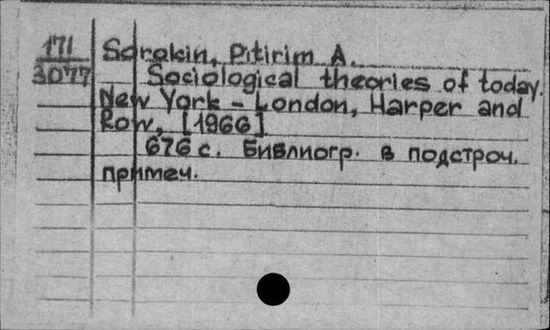 171
3077
Sorokin, Pitirim A.
Sociological theories of today.
New York - London, Harper and
Row, [1966]
676 с. Библиогр. в подстроч.
примеч.